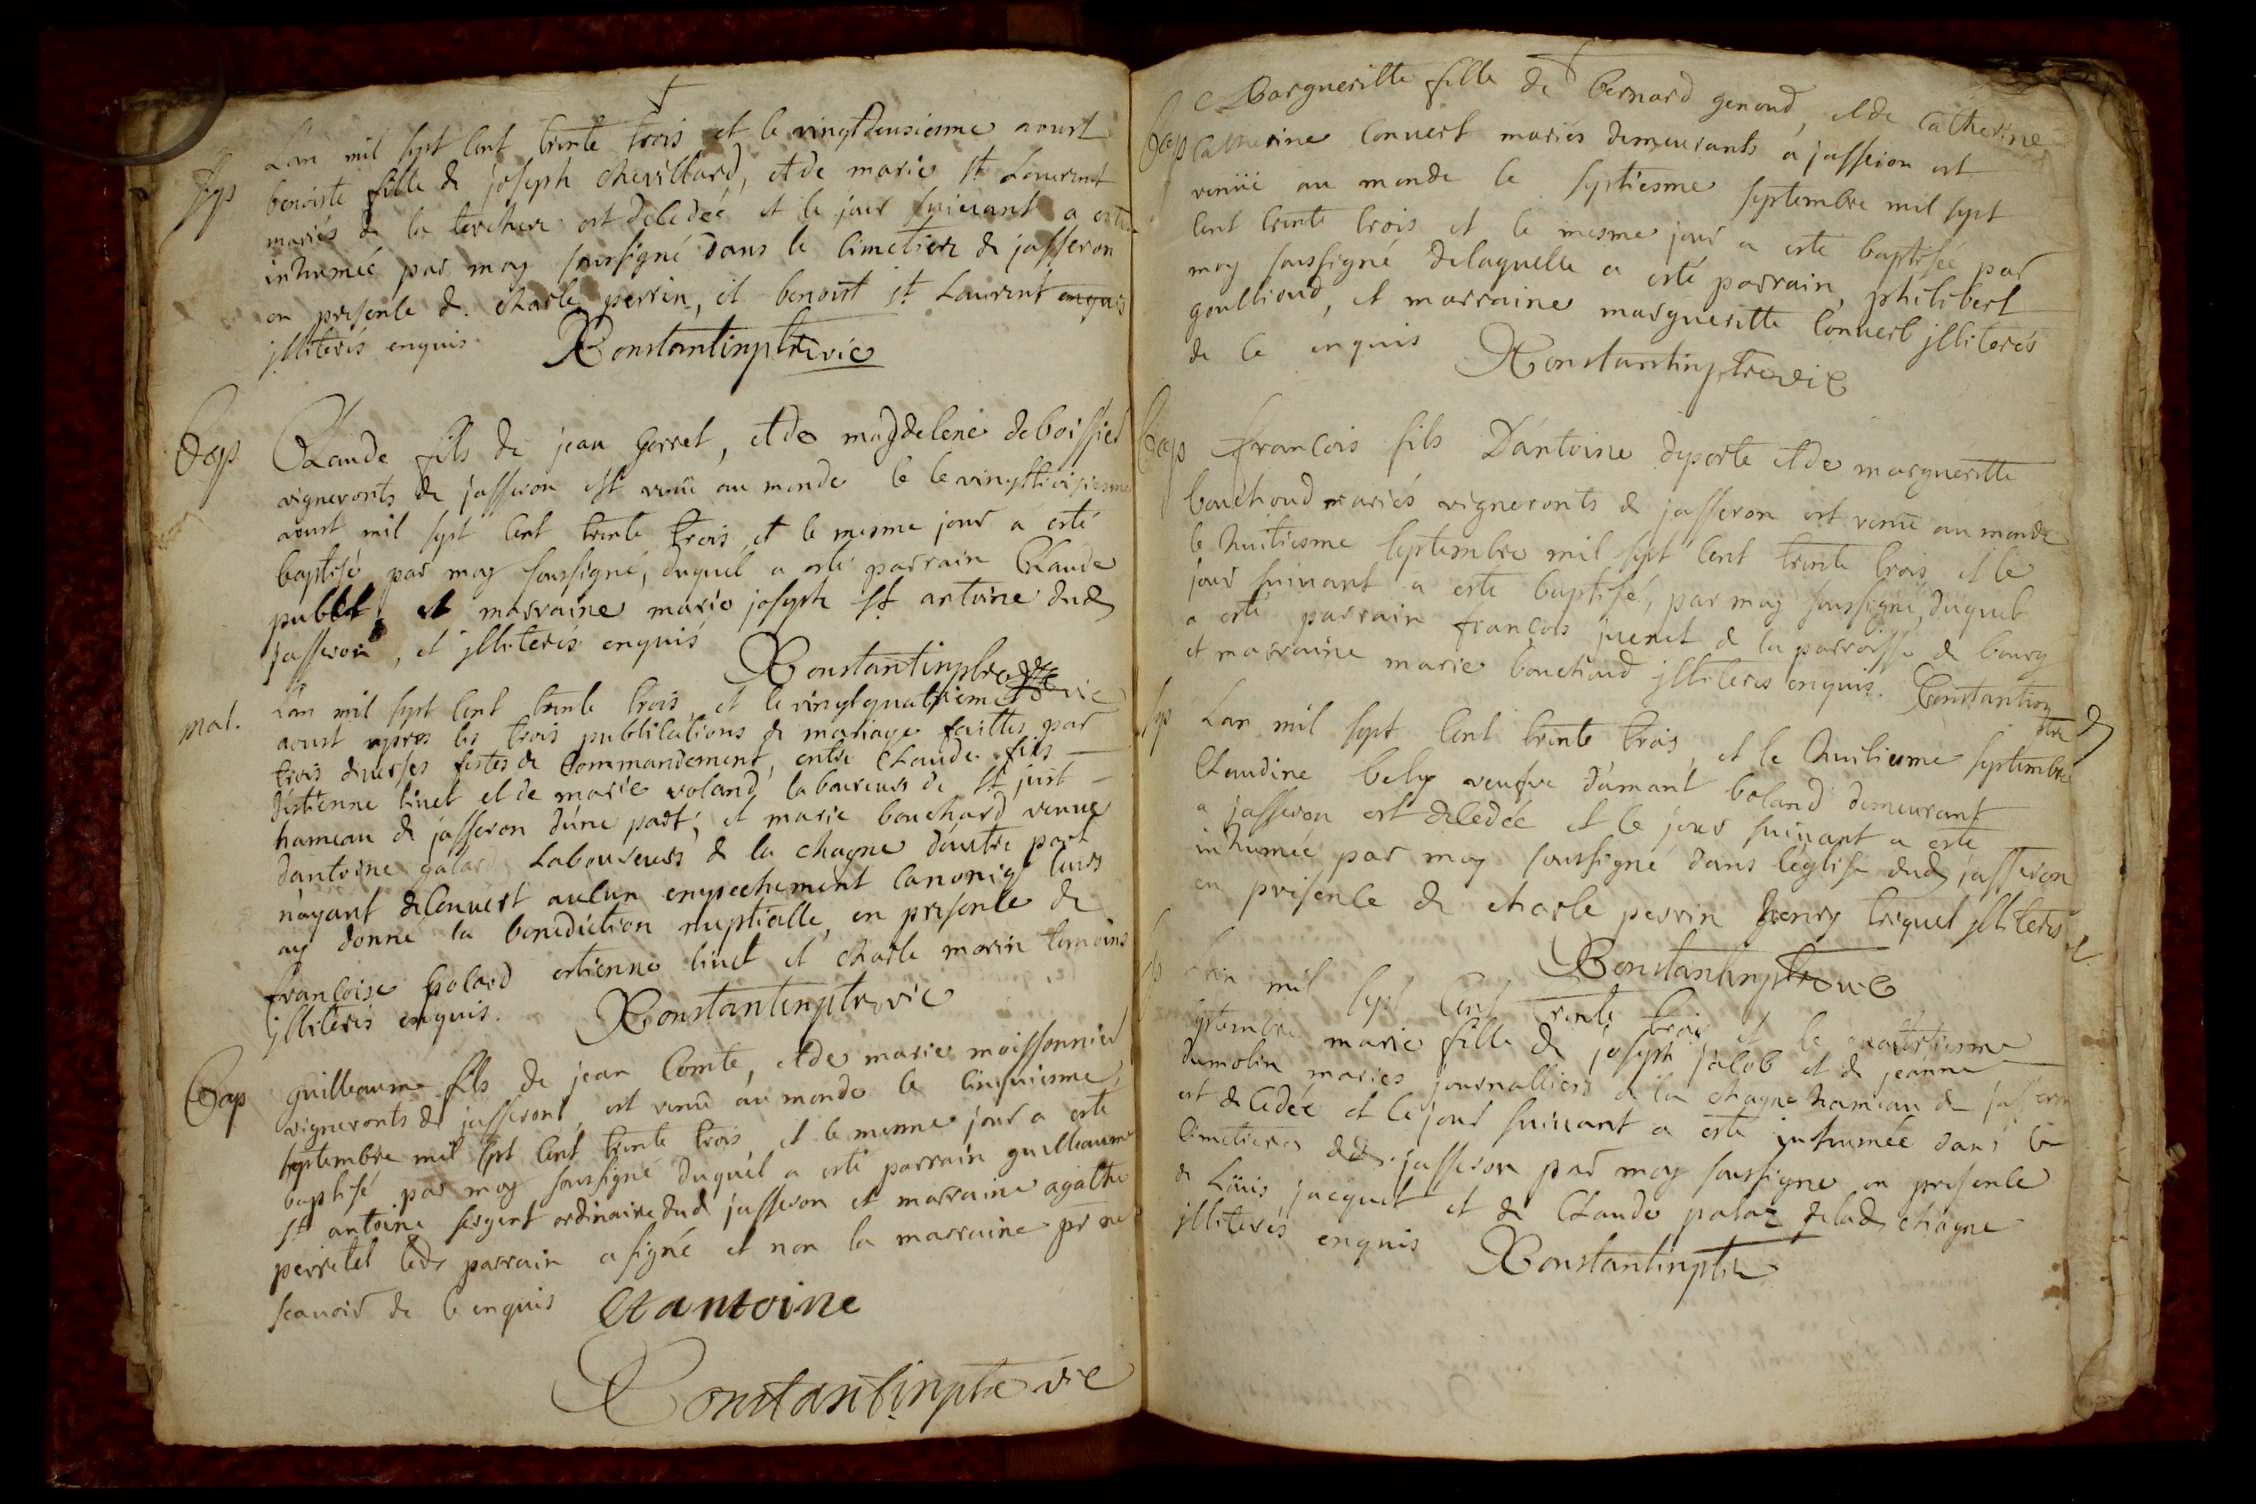 Lan mil sept cent trente trois et le vingtdeusiesme aoust
Sep benoiste fille de joseph chevillard, et de marie st Laurent
mariés de la terchere est decedée et le jour suivant a esté
inhumée par moy soussigné dans le cimetiere de jasseron
en presence de charle perrin, et benoist st Laurent enquis
jlliterés enquis. Constantin ptre vic
Bap Claude fils de jean gorret, et de magdelene deboissier
vigneronts de jasseron est venu au monde le le vingttroisiesme
aoust mil sept cent trente trois et le mesme jour a esté
baptisé par moy soussigné, duquel a esté parrain Claude
publet et marraine marie joseph st antoine dud
jasseron, et jlliterés enquis Constantin ptre vic
mat. Lan mil sept cent trente trois, et le vingtquatriesme
aoust apres les trois publications de mariage faittes par
trois diverses festes de Commandement, entre Claude fils
d'estienne livet et de marie voland laboureurs de st just
hameau de jasseron d'une part, et marie bouchard venue
dantoine galard Laboureurs de la chagne d'autre part
n'ayant decouvert aucun empechement canoniq leurs
ay donné la benediction nuptialle, en presence de
françoise golard estienne livet et charle morin temoins
jlliterés enquis. Constantin ptre vic
Bap guilleaume fils de jean Comte, et de marie moissonnier
vigneronts de jasseront, est venu au monde le cinquiesme
septembre mil sept cent trente trois et le mesme jour a esté
baptisé par moy soussigné duquel a esté parrain guilleaume
st antoine sergent ordinaire dud jasseron et marraine agathe
perretet led parrain a signé et non la marraine pr ne
scavoir de ce enquis Stantoine
Constantin ptre vic
Margueritte fille de bernard genoud, et de catherine
Bap Catherine Convert mariés demeurants a jasseron est
venüe au monde le septiesme septembre mil sept
cent trente trois et le mesme jour a esté baptisée par
moy soussigné delaquelle a esté parrain, philibert
goullioud, et marraine margueritte Convert jlliterés
de ce enquis Constantin ptre vic
Bap françois fils D'antoine deporte et de margueritte
bouchoud mariés vigneronts de jasseron est venu au monde
le huitiesme septembre mil sept cent trente trois et le
jour suivant a esté baptisé, par moy soussigné, duquel
a esté parrain françois juenet de la parroisse de bourg
et marraine marie bouchoud jlliteres enquis. Constantin
ptre
Sep Lan mil sept cent trente trois, et le huitiesme septembre
Claudine bely veufve d'amant boland demeurant
a jasseron est decedée et le jour suivant a esté
inhumée par moy soussigné dans léglise dud jasseron
en presence de charle perrin henry triquet jlliterés
Constantin ptre vic
Lan mil sept cent trente trois et le
septembre marie fille de joseph jacob et de jeanne
dumolin mariés journalliers de la chagne hameau de jasseron
est decedée et le jour suivant a esté inhumée dans le
cimetiere dud. jasseron par moy soussigné en presence
de Loüis jacquet et de Claude palaz delad chagne
jlliterés enquis Constantin ptre